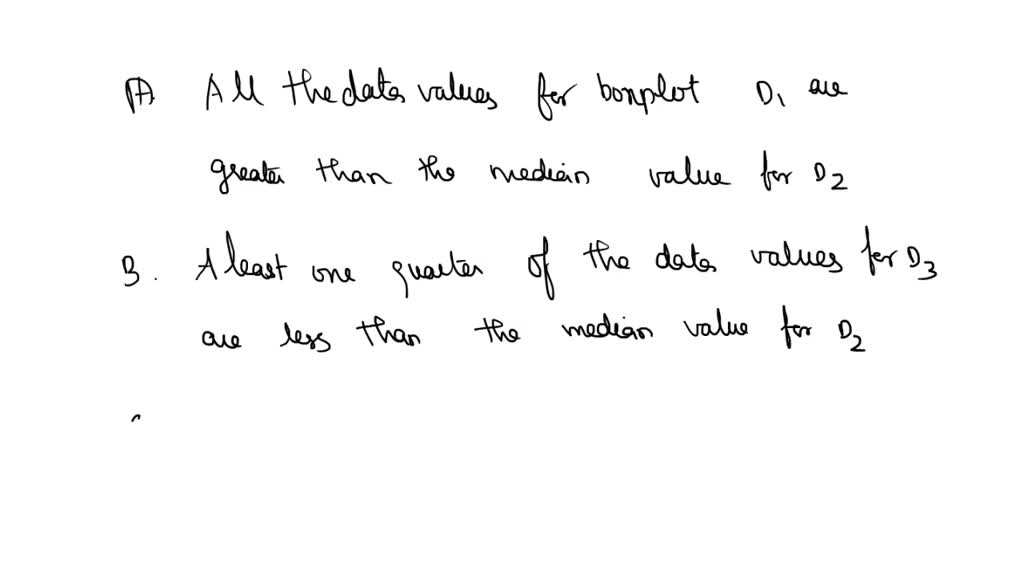 A. All the data values for boxplot D1 are
greater than the median value for D2
B. Aleast one quarter of the data values for D3
are less than the median value for D2